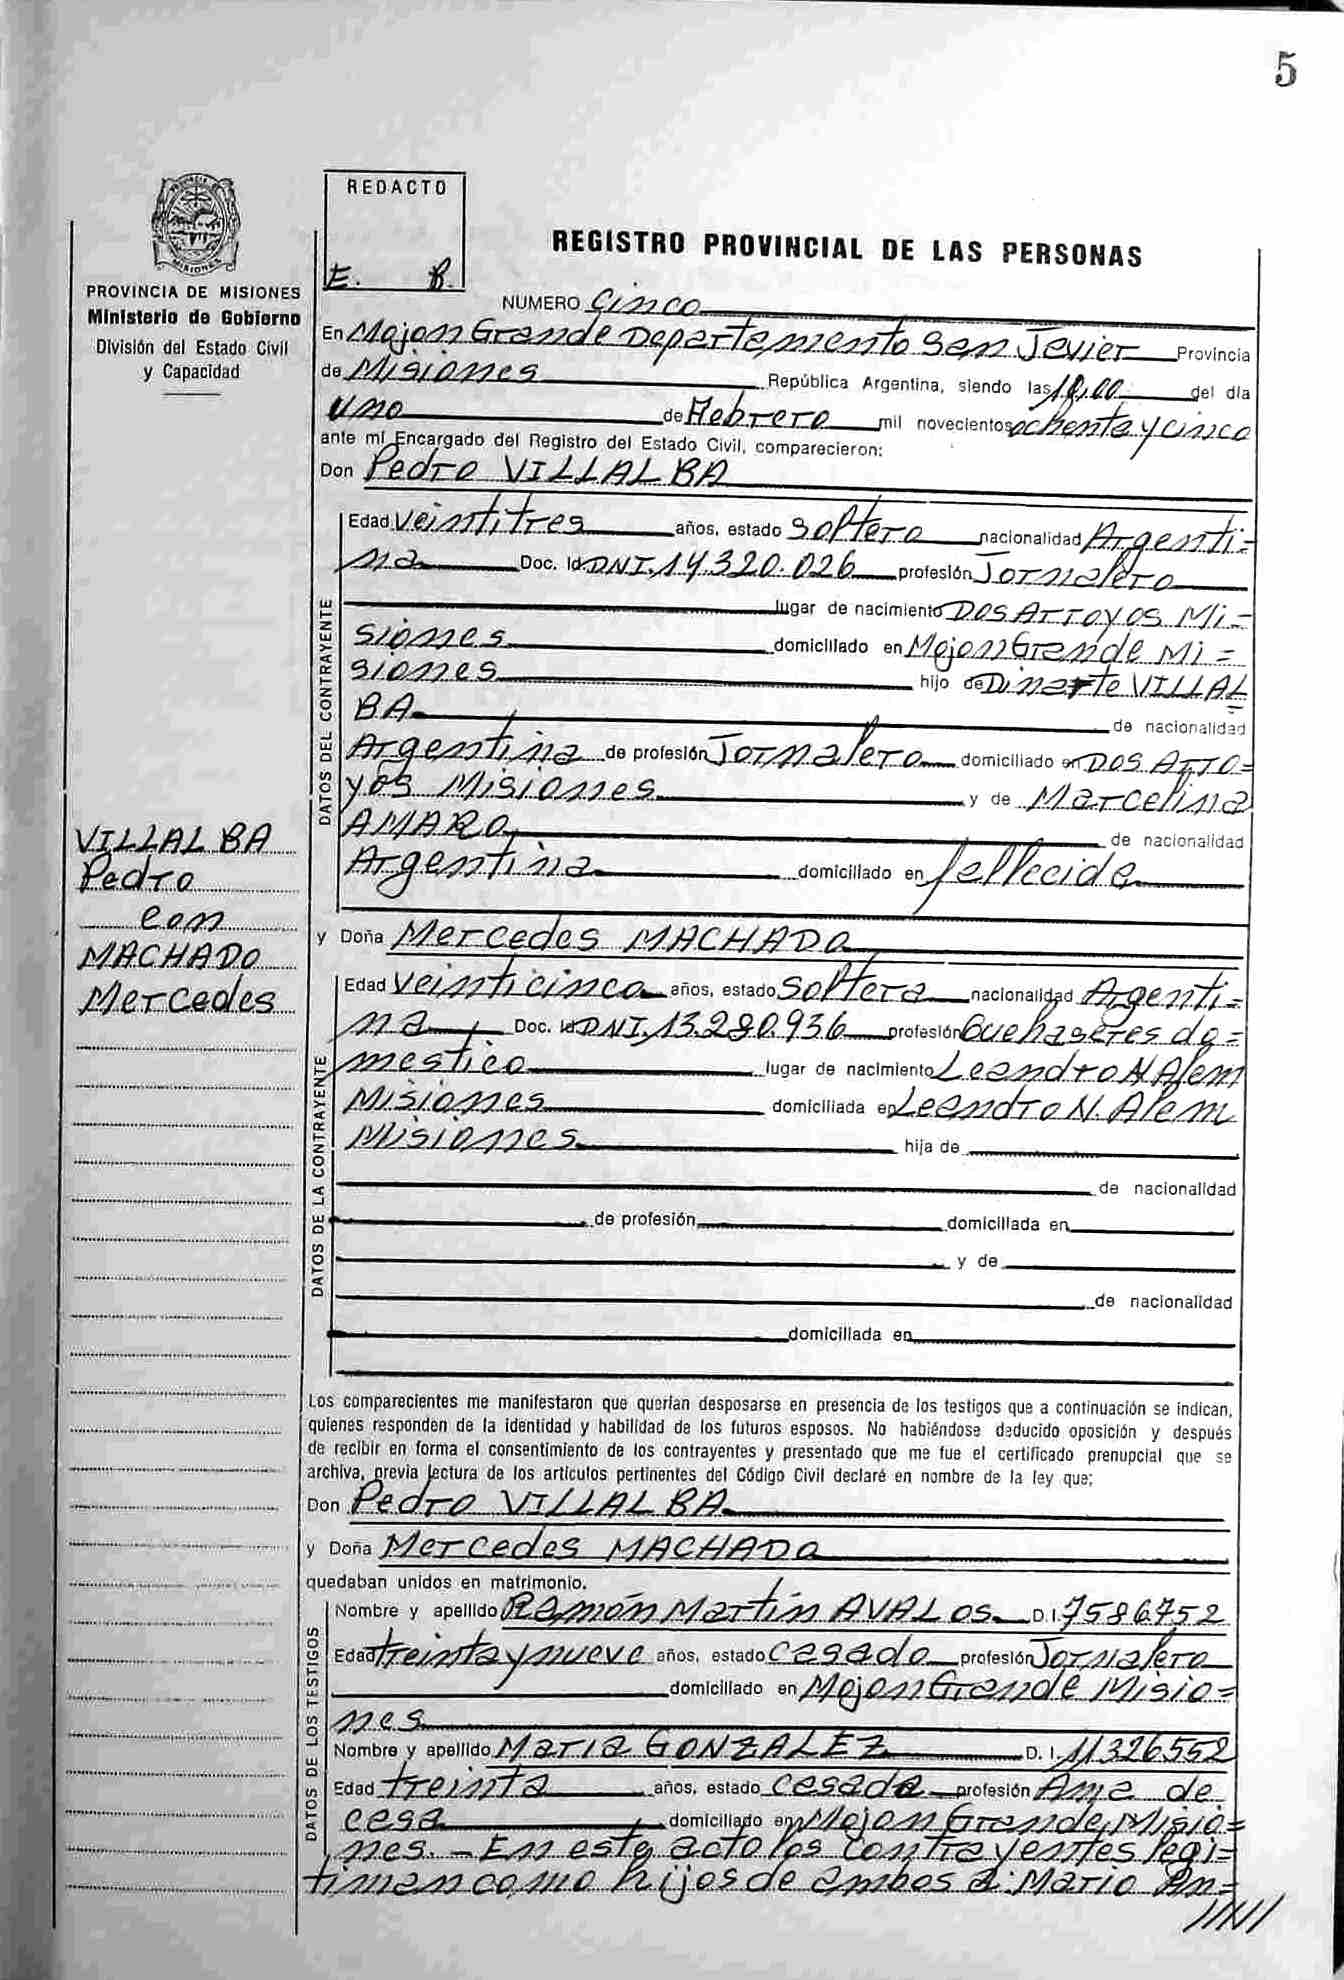 5
REDACTO
E. B.
PROVINCIA DE MISIONES
Ministerio de Gobierno
División del Estado Civil
y Capacidad
REGISTRO PROVINCIAL DE LAS PERSONAS
NUMERO Cinco
En Mojon Grande Departamento San Javier Provincia
de Misiones República Argentina, siendo las 10,00 del día
uno de Febrero mil novecientos ochenta y cinco
ante mí Encargado del Registro del Estado Civil, comparecieron:
Don Pedro VILLALBA
DATOS DEL CONTRAYENTE
Edad Veintitres años, estado Soltero nacionalidad Argenti=
na Doc. Id DNI. 14.320.026 profesión Jornalero
lugar de nacimiento Dos Arroyos Mi=
siones domiciliado en Mojon Grande Mi=
siones hijo de Dinarte VILLAL
BA de nacionalidad
Argentina de profesión Jornalero domiciliado en Dos Arro=
yos Misiones y de Marcelina
AMARO de nacionalidad
Argentina domiciliado en fallecida
VILLALBA
Pedro
con
MACHADO
Mercedes
y Doña Mercedes MACHADO
DATOS DE LA CONTRAYENTE
Edad Veinticinco años, estado Soltera nacionalidad Argenti=
na, Doc. Id DNI. 13.280.936 profesión Quehaseres do=
mestico lugar de nacimiento Leandro N Alem
Misiones domiciliada en Leandro N. Alem
Misiones hija de
de nacionalidad
de profesión domiciliada en
y de
de nacionalidad
domiciliada en
Los comparecientes me manifestaron que querían desposarse en presencia de los testigos que a continuación se indican,
quienes responden de la identidad y habilidad de los futuros esposos. No habiéndose deducido oposición y después
de recibir en forma el consentimiento de los contrayentes y presentado que me fue el certificado prenupcial que se
archiva, previa lectura de los artículos pertinentes del Código Civil declaré en nombre de la ley que:
Don Pedro VILLALBA
y Doña Mercedes MACHADO
quedaban unidos en matrimonio.
DATOS DE LOS TESTIGOS
Nombre y apellido Ramón Martín AVALOS D.I. 7586752
Edad treinta y nueve años, estado casado profesión Jornalero
domiciliado en Mojon Grande Misio=
nes
Nombre y apellido Maria GONZALEZ D. I. 11326552
Edad treinta años, estado casada profesión Ama de
casa domiciliado en Mojon Grande, Misio=
nes. - En este acto los contrayentes legi=
timan como hijos de ambos a: Mario An=
/////